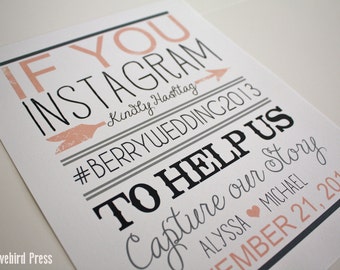 IF YOU
INSTAGRAM
Kindly Hashtag
#BERRYWEDDING2013
TO HELP US
Capture our Story
ALYSSA MICHAEL
21, 201
Press